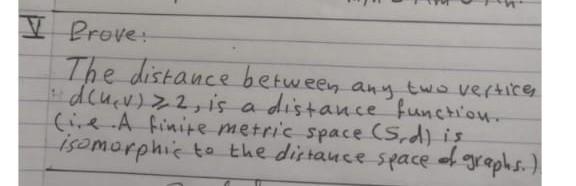 V Prove:
The distance between any two vertices
d(u,v) ≥ 2, is a distance function.
(i.e. A finite metric space (S,d) is
isomorphic to the distance space of graphs.)